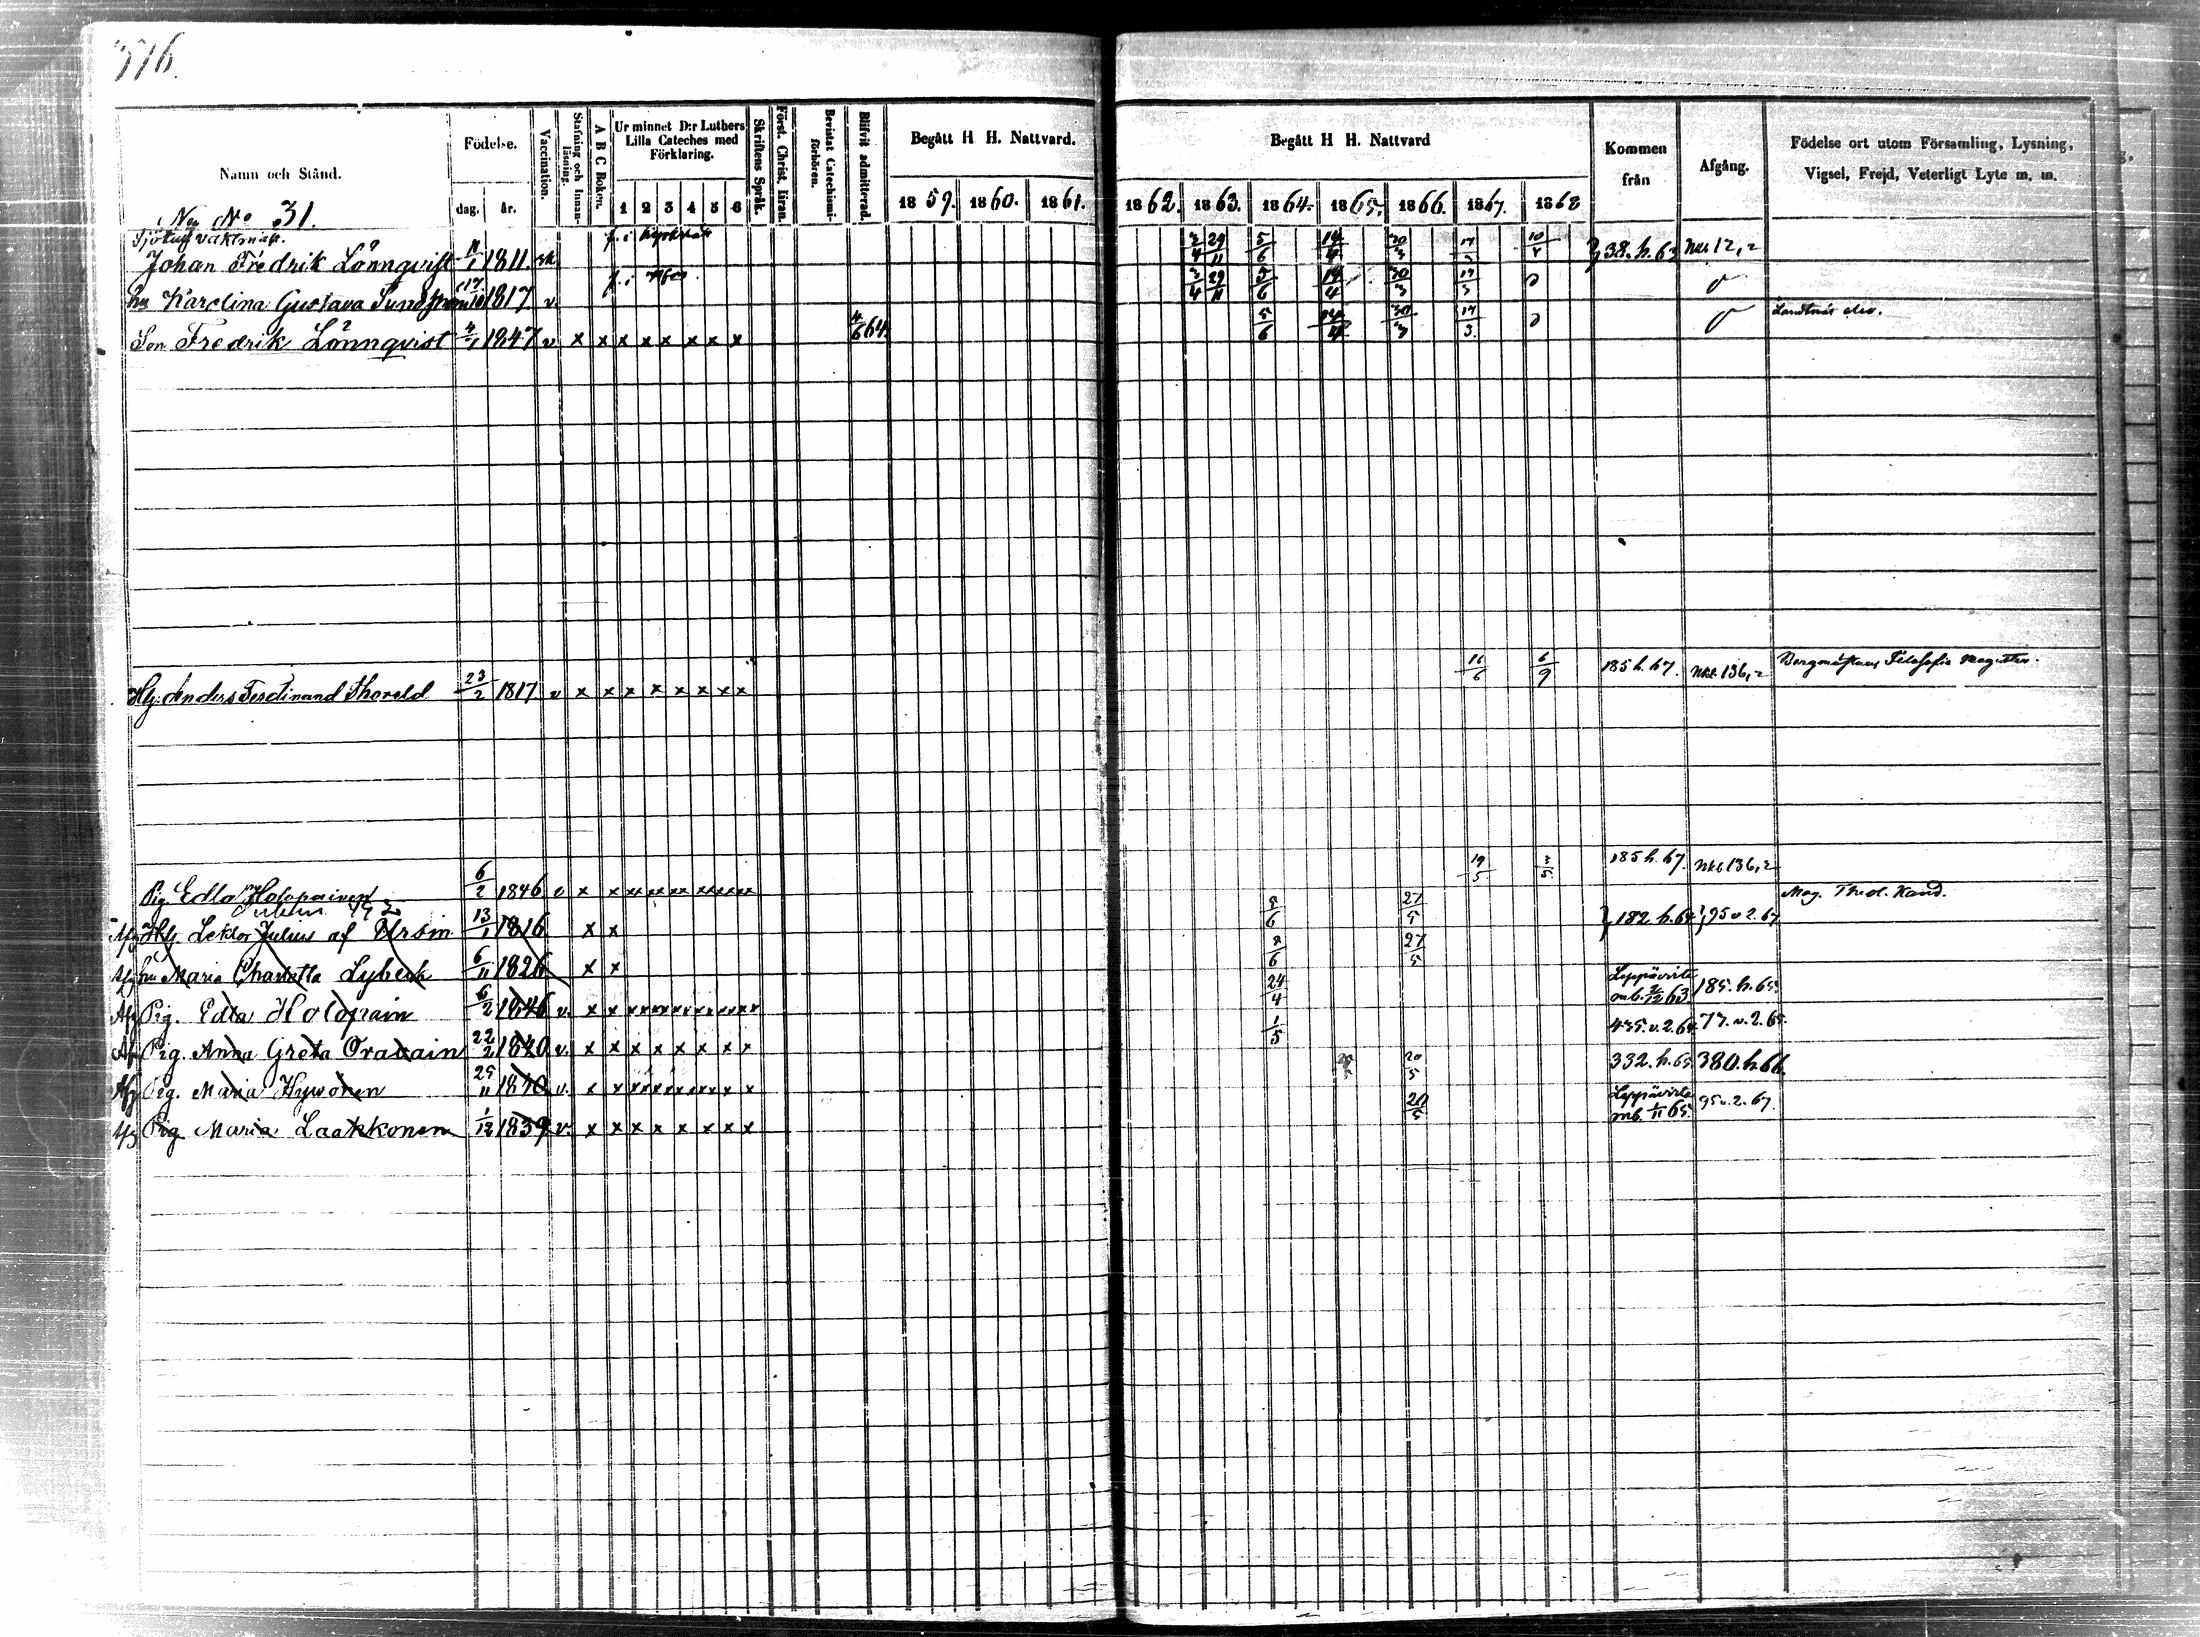 716.
Namn och Stånd.
Födelse.
dag.
år.
Vaccination.
Stafning och Innan-läsning.
A B C Boken.
Ur minnet D:r Luthers Lilla Cateches med Förklaring.
1 2 3 4 5 6
Skriftens Språk.
Först. Christ. läran.
Bevistat Catechismi-förhören.
Blifvit admitterad.
Begått H H. Nattvard.
1859. 1860. 1861.
Begått H H. Nattvard
1862. 1863. 1864. 1865. 1866. 1867. 1868
Kommen från
Afgång.
Födelse ort utom Församling, Lysning, Vigsel, Frejd, Veterligt Lyte m. m.
No 31.
vaktmäst.
Johan Fredrik Lönnqvist 1811. 2/4 29/11 5/6 14/4 10/4 38. h. 63 Nkb 12,2
hu Karolina Gustava 1817 v 2/4 29/11 5/6 14/4 30/3 17/3
Son Fredrik Lönnqvist 4/1 1847 v x x x x x x x x 4/6 64. 5/6 14/4 30/3 17/3
Hlg. Anders Ferdinand Thoreld 23/2 1817 v x x x x x x x x 16/6 6/9 185 h. 67. Nkb. 136,2 Filosofie Magister.
Pig. Edla Holopainen 6/2 1846 v x x xx xx xx xx xx 19/5 185 h. 67. Nkb 136,2
Afg Hlg. Lektor Julius af Ursin 13/1 1816 x x 27/5 } 182. h. 64 } 95 v 2. 67 Mag. Theol. Kand.
Afg hu Maria Charlotta Lybeck 6/11 1826 x x 27/5
Afg Pig. Edla Holopain 6/2 1846 v. x x xx xx xx xx xx 24/4 Leppävirta mb. 63 185. h. 65
Af Pig. Anna Greta Oravain 22/2 1840 v. x x x x x x x x 1/5 435. v. 2. 64 77. v. 2. 65.
Afg Pig. Maria Hyvönen 25/11 1840 v. x x xx xx xx xx x 20/5 332. h. 65 380. h 66.
Afg Pig Maria Laakkonen 1/12 1839 v. x x x x x x x x 20/5 Leppävirta mb. 1/11 65 95 v. 2. 67.